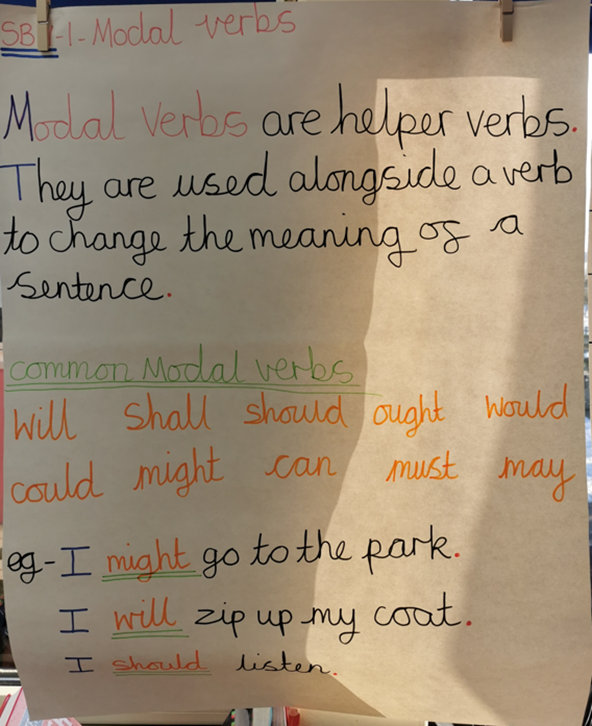 SB -1- Modal verbs
Modal verbs are helper verbs.
They are used alongside a verb
to change the meaning of a
sentence.
common Modal verbs
will shall should ought would
could might can must may
eg- I might go to the park.
I will zip up my coat.
I should listen.